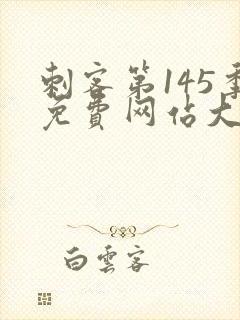 刺客第145季
免費网佔大
白雲客